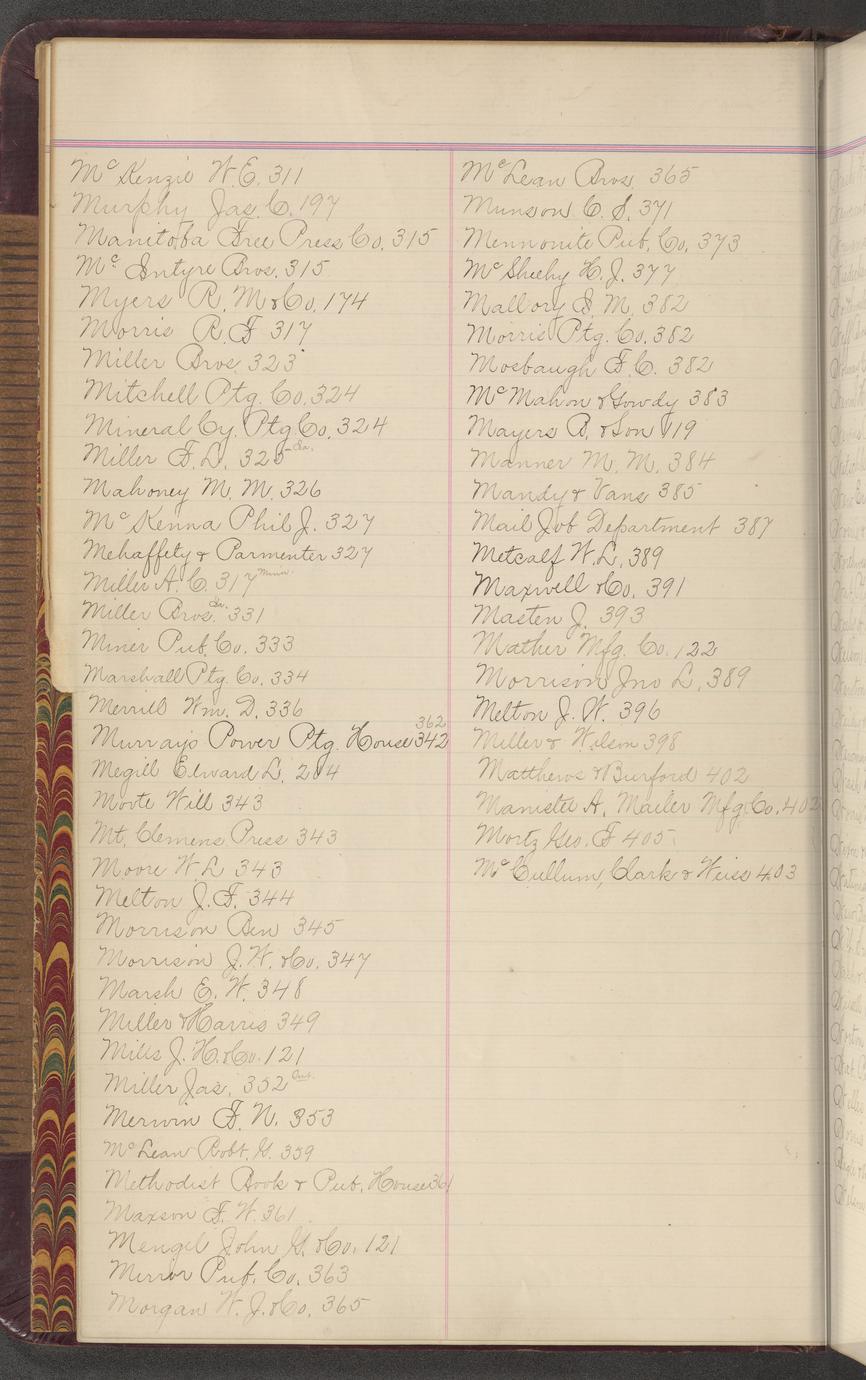 Mc Kenzie W. E. 311
Murphy Jas. C. 197
Manitoba Free Press Co. 315
Mc Intyre Bros. 315
Myers R. M & Co. 174
Morris R. F 317
Miller Bros. 323
Mitchell Ptg. Co. 324
Mineral Cy. Ptg Co. 324
Miller F. L. 325 Ia.
Mahoney M. M. 326
Mc Kenna Phil J. 327
Mehaffety & Parmenter 327
Miller A. C. 317 Minn.
Miller Bros. Ia. 331
Miner Pub. Co. 333
Marshall Ptg. Co. 334
Merrill Wm. D. 336
362
Murray's Power Ptg. House 342
Megill Edward L. 204
Moote Will 343
Mt. Clemens Press 343
Moore W L 343
Melton J. F. 344
Morrison Ben 345
Morrison J. W. & Co. 347
Marsh E. W. 348
Miller & Harris 349
Mills J. H. & Co. 121
Miller Jas. 352 Ont.
Merwin F. N. 353
Mc Lean Robt. G. 359
Methodist Book & Pub. House 361
Maxson F. W. 361
Mengel John G. & Co. 121
Mirror Pub. Co. 363
Morgan W. J. & Co. 365
Mc Lean Bros. 365
Munson C. S. 371
Mennonite Pub. Co. 373
Mc Sheehy H. J. 377
Mallory S. M. 382
Morris Ptg. Co. 382
Mosbaugh F. C. 382
Mc Mahon & Gowdy 383
Mayers B. & Son 119
Manner M. M. 384
Mandy & Vans 385
Mail Job Department 387
Metcalf W. L. 389
Maxwell & Co. 391
Masten J. 393
Mather Mfg. Co. 122
Morrison Jno L. 389
Melton J. W. 396
Miller & Wilson 398
Matthews & Burford 402
Manistee A. Mailer Mfg Co. 402
Mortz Geo. F 405
Mc Cullum, Clark & Weiss 403